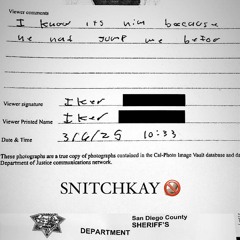 Viewer comments
I know its him because
he had jump me befor
Viewer signature Iker
Viewer Printed Name Iker
Date & Time 3/6/25 10:33
These photographs are a true copy of photographs contained in the Cal-Photo Image Vault database and
Department of Justice communications network.
SNITCHKAY
San Diego County
SHERIFF'S
DEPARTMENT